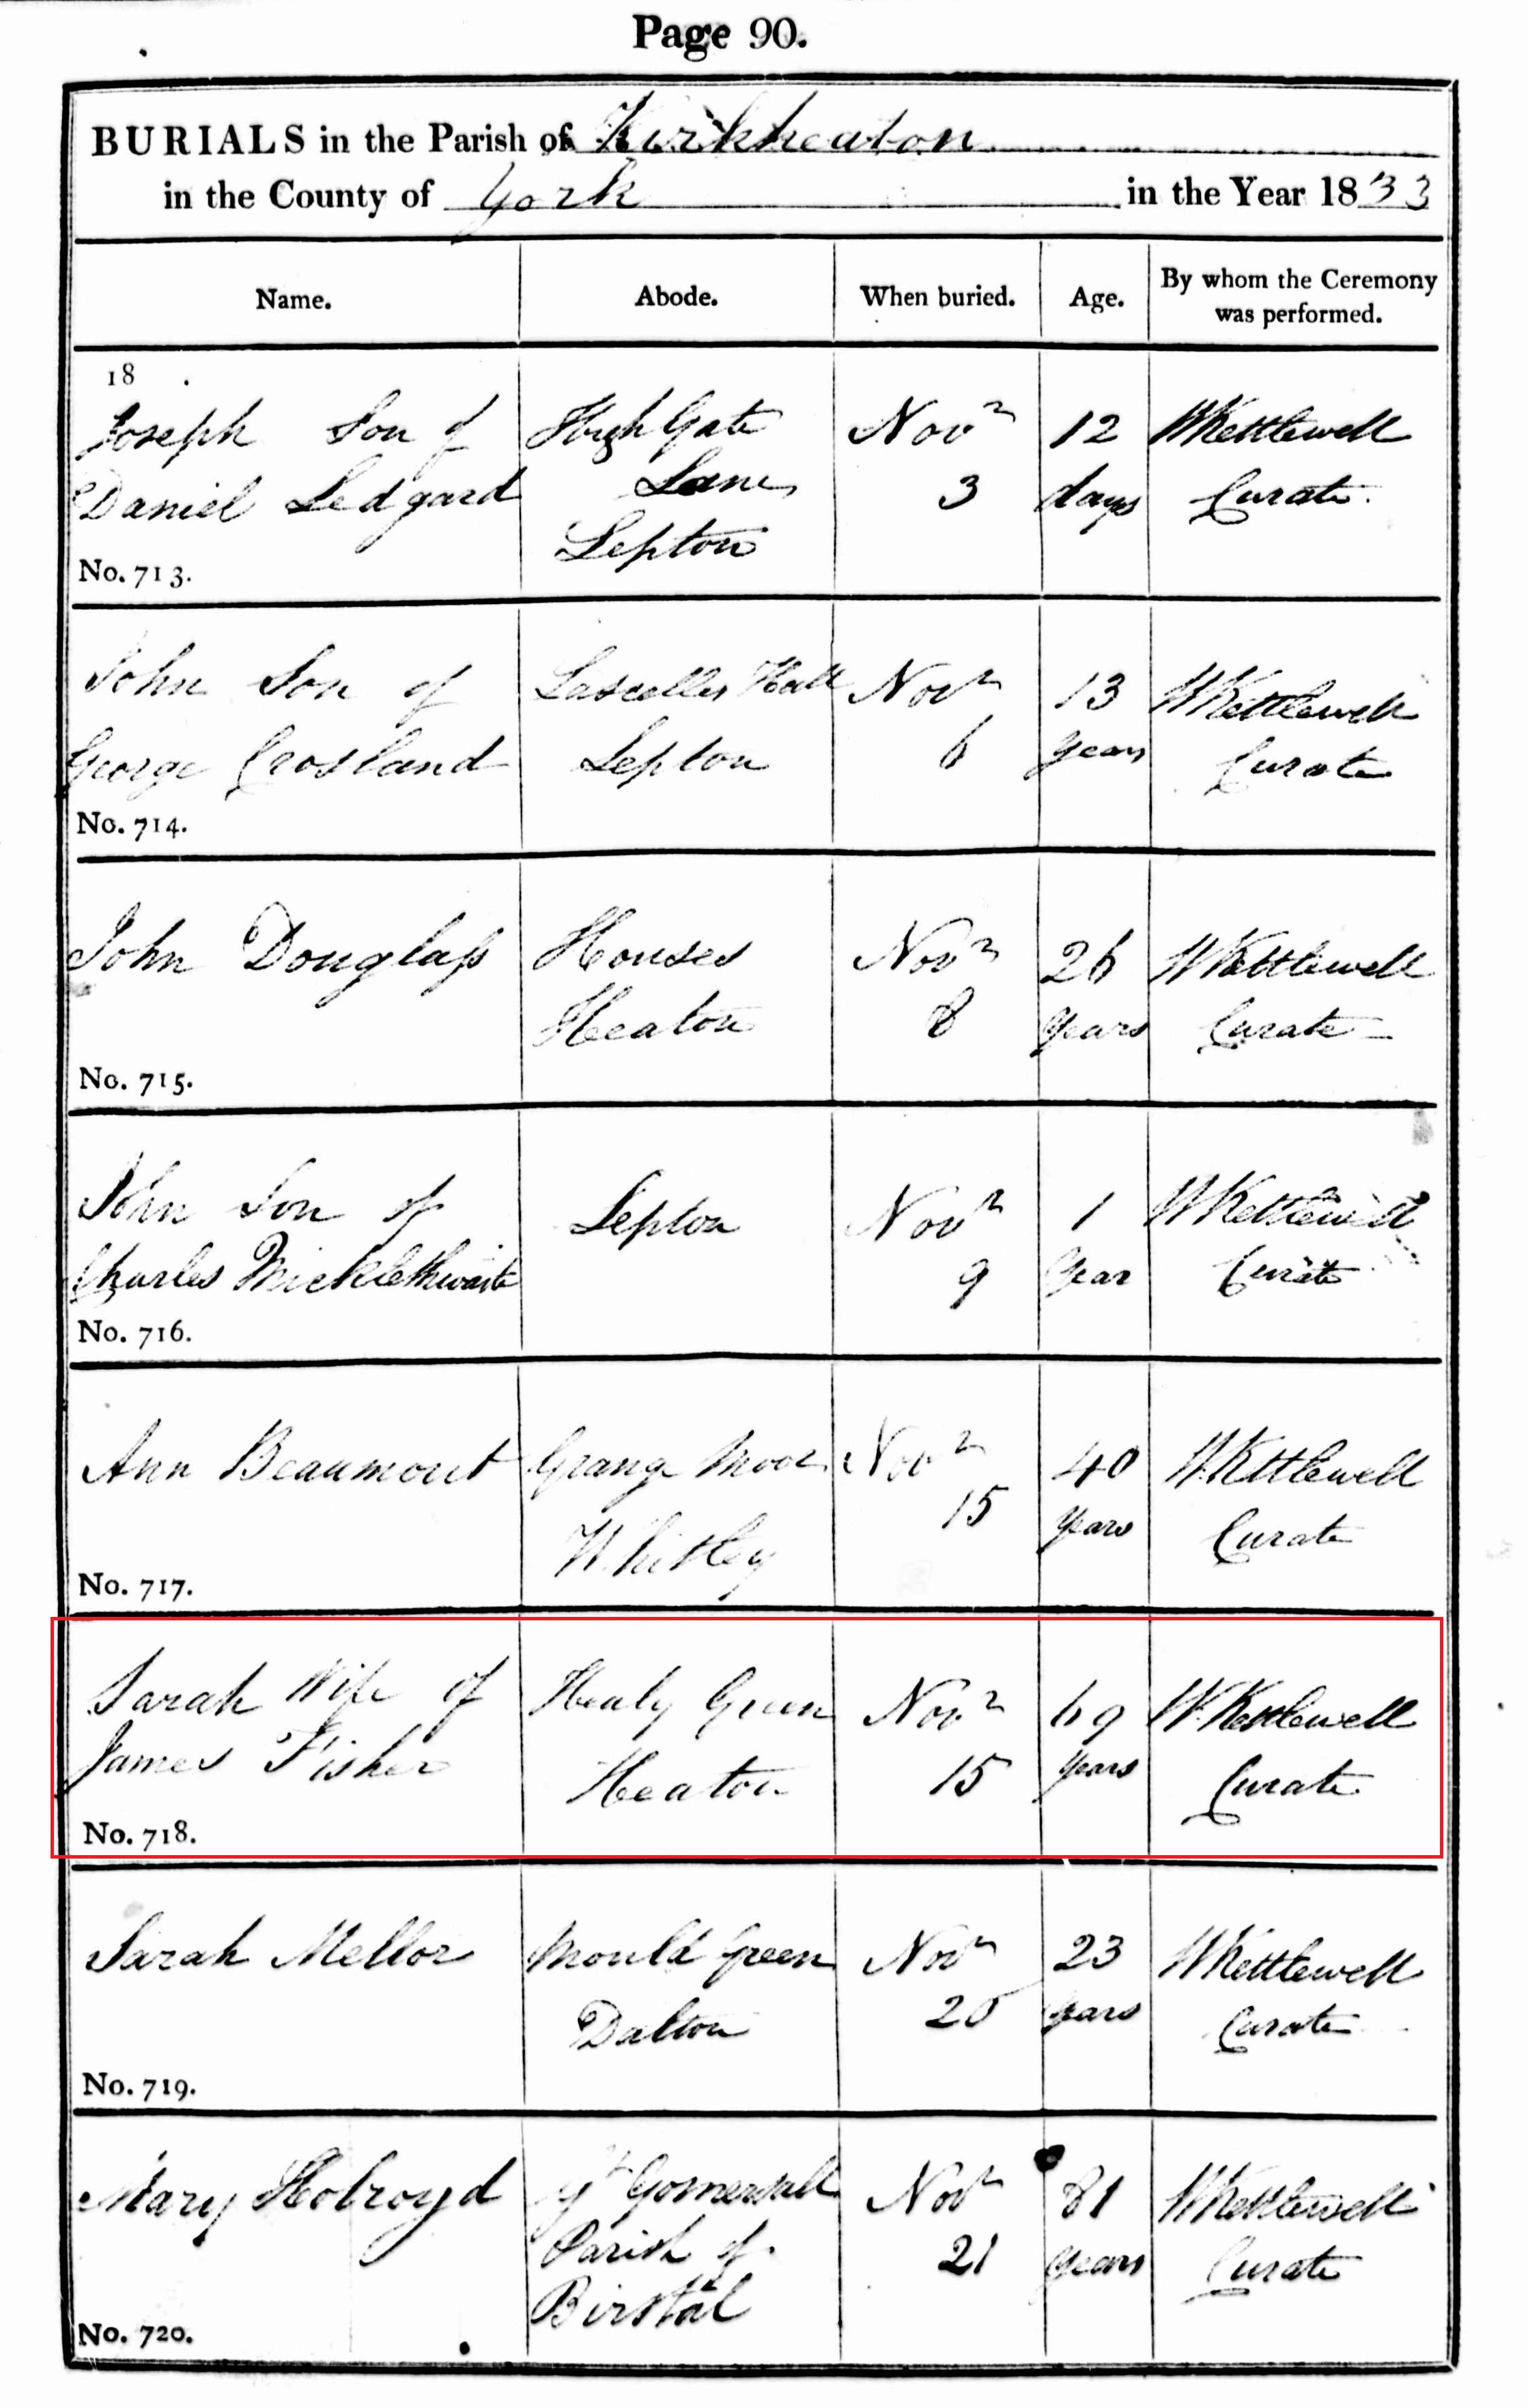 Page 90.
BURIALS in the Parish of Kirkheaton
in the County of York in the Year 1833
Name. Abode. When buried. Age. By whom the Ceremony was performed.
18
Joseph Son of High Gate Novr 12 WKettlewell
Daniel Ledgard Lane 3 days Curate.
Lepton
No. 713.
John Son of Lascelles Hall Novr 13 WKettlewell
George Crosland Lepton 6 Years Curate
No. 714.
John Douglass Houses Novr 26 WKettlewell
Heaton 8 Years Curate
No. 715.
John Son of Lepton Novr 1 WKettlewell
Charles Micklethwaite 9 Year Curate
No. 716.
Ann Beaumont Grange Moor Novr 40 WKettlewell
Whitley 15 Years Curate
No. 717.
Sarah Wife of Healy Green Novr 69 WKettlewell
James Fisher Heaton 15 Years Curate
No. 718.
Sarah Mellor Mould Green Novr 23 WKettlewell
Dalton 20 Years Curate
No. 719.
Mary Holroyd Gt Gomersall Novr 81 WKettlewell
Parish of 21 Years Curate
Birstal
No. 720.